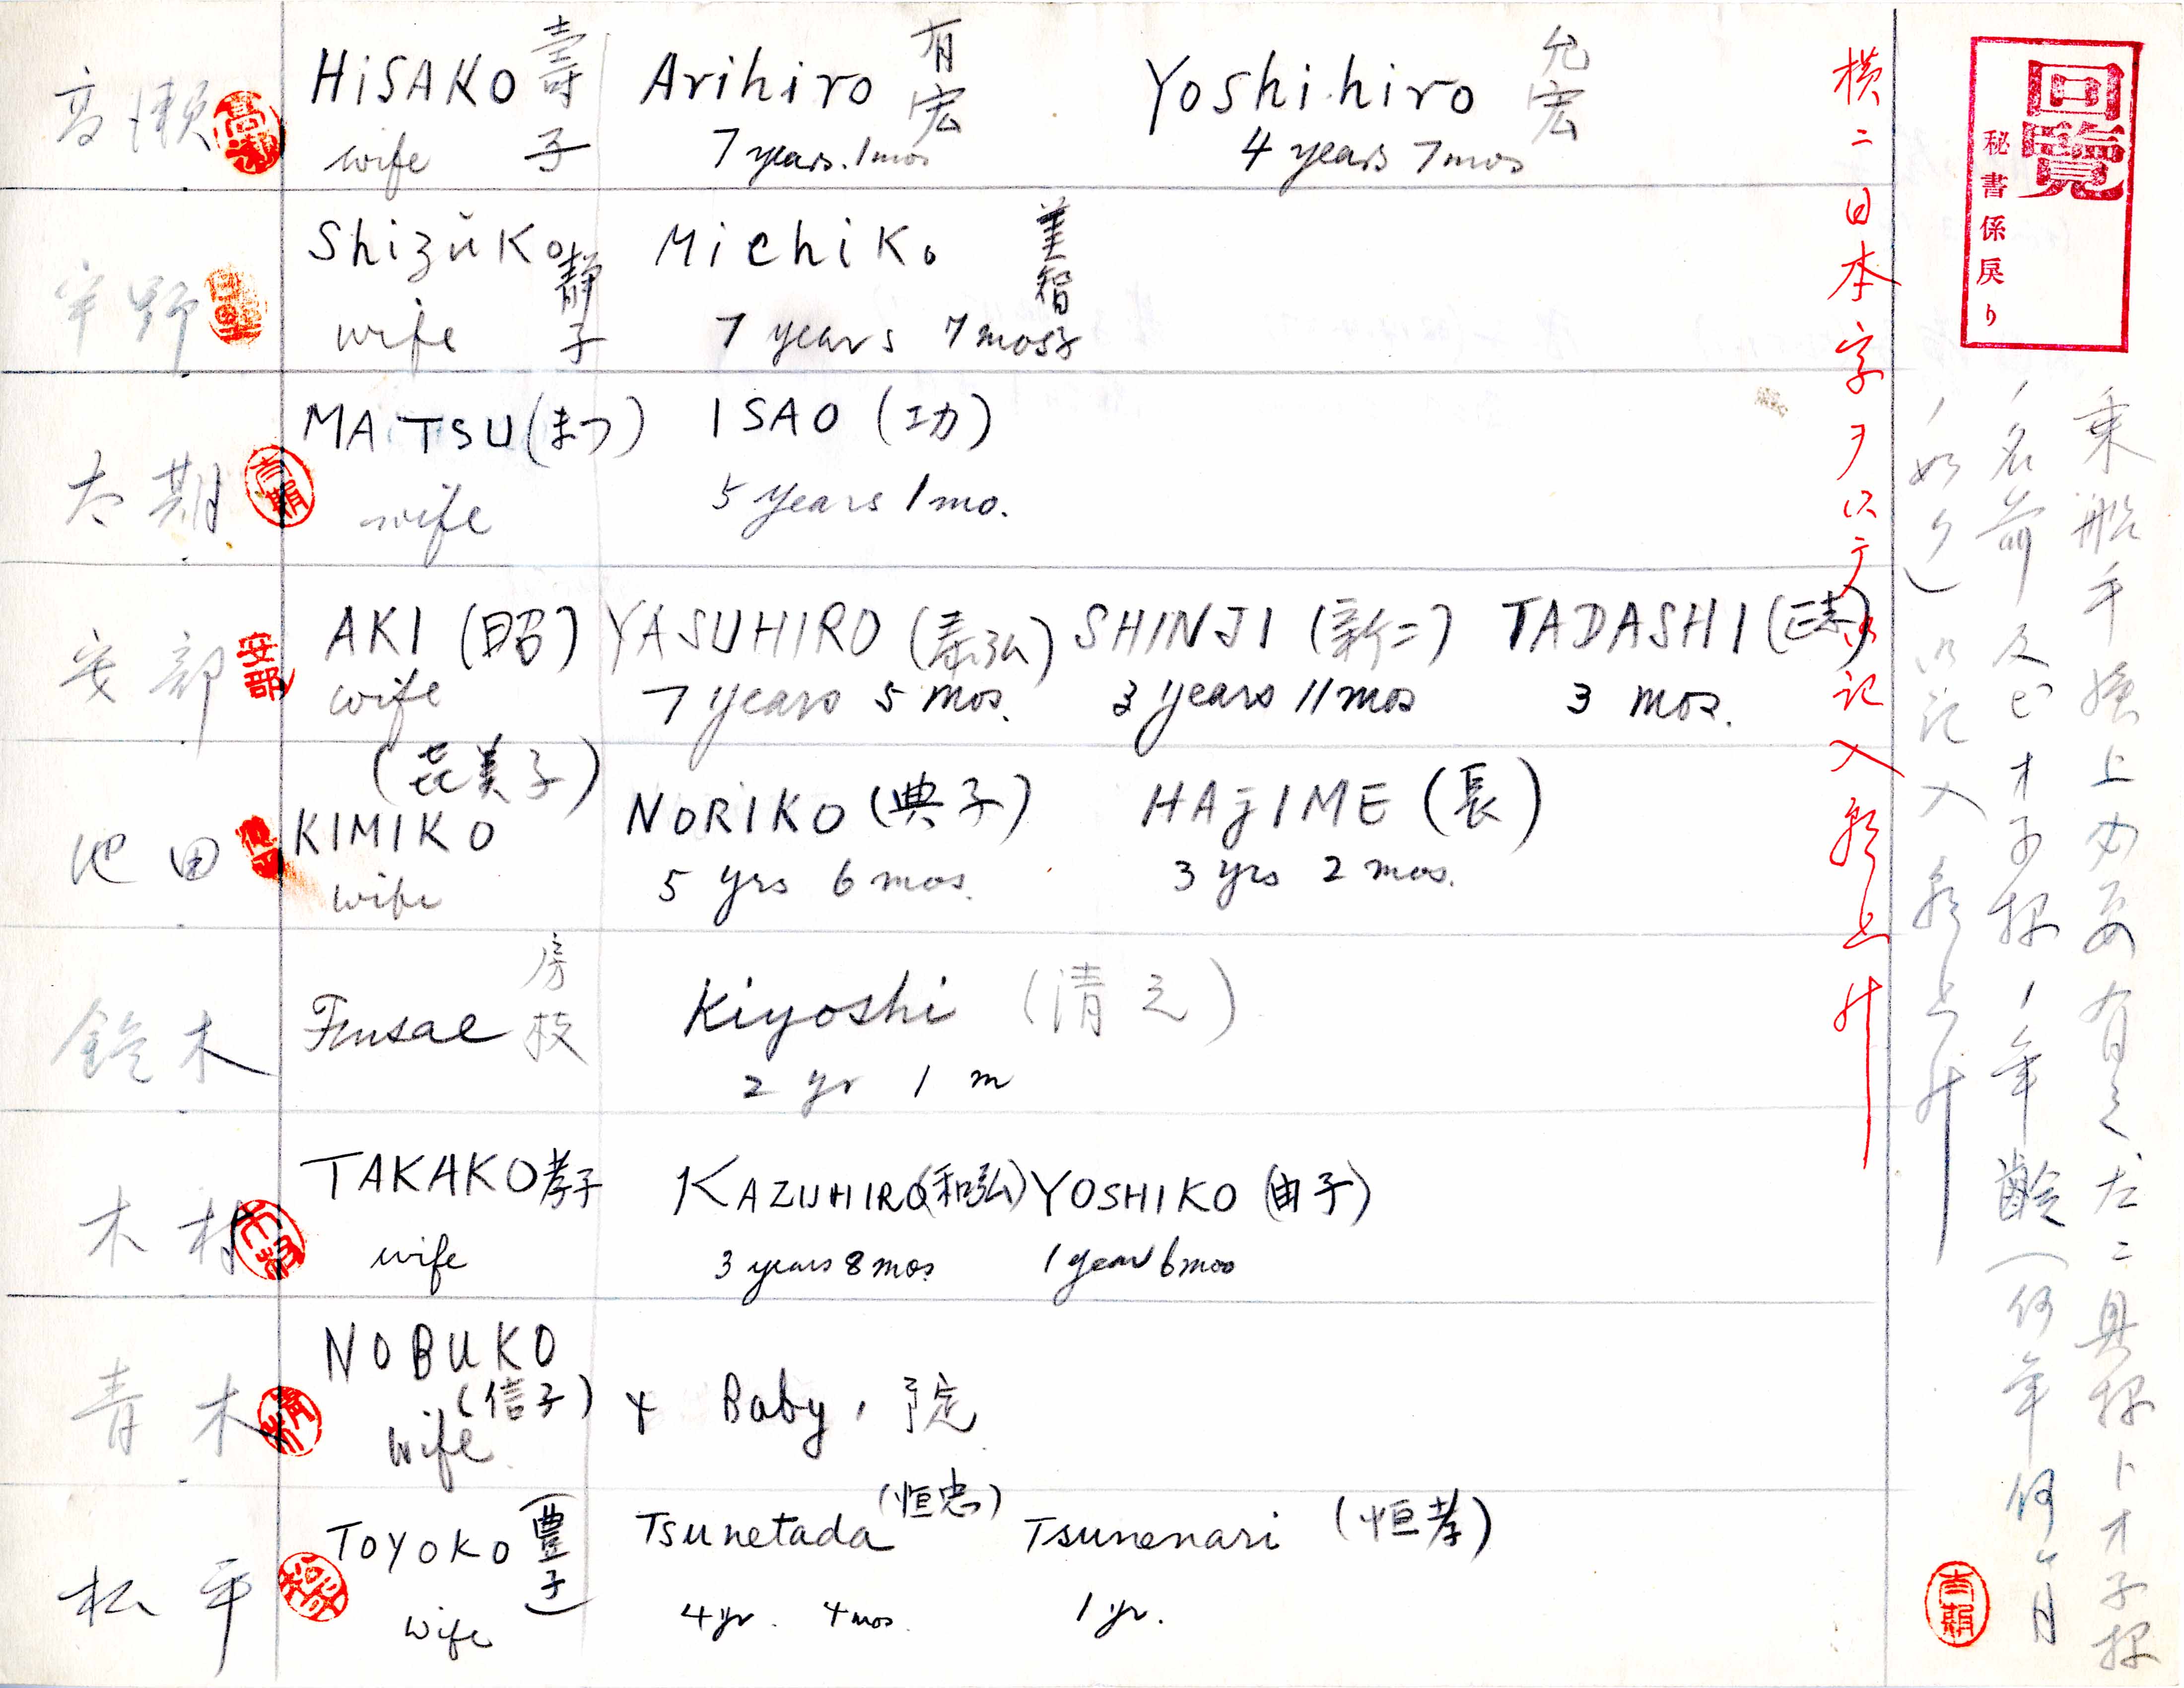 回覧
秘書係戻り
乗船手続上必要有之左ニ奥様トオ子様
ノ名前及ビオ子様ノ年齢(何年何ヶ月
ノ如ク)御記入願上升
横ニ日本字ヲ以テ御記入願上升
高瀬
HISAKO 壽子
wife
Arihiro 有宏
7 years. 1 mos
Yoshihiro 允宏
4 years 7 mos
宇野
Shizuko 静子
wife
Michiko 美智子
7 years 7 mos
太期
MATSU (まつ)
wife
ISAO (功)
5 years 1 mo.
安部
安部
AKI (昭)
wife
YASUHIRO (泰弘)
7 years 5 mos.
SHINJI (新二)
3 years 11 mos
TADASHI
3 mos.
池田
(㐂美子)
KIMIKO
wife
NORIKO (典子)
5 yrs 6 mos.
HAJIME (長)
3 yrs 2 mos.
鈴木
Fusae 房枝
Kiyoshi (清之)
2 yr 1 m
木村
TAKAKO 孝子
wife
KAZUHIRO (和弘)
3 years 8 mos
YOSHIKO (由子)
1 year 6 mos
青木
NOBUKO
(信子)
wife
Baby, 予定
松平
TOYOKO (豊子)
wife
Tsunetada (恒忠)
4 yr. 4 mos.
Tsunenari (恒孝)
1 yr.